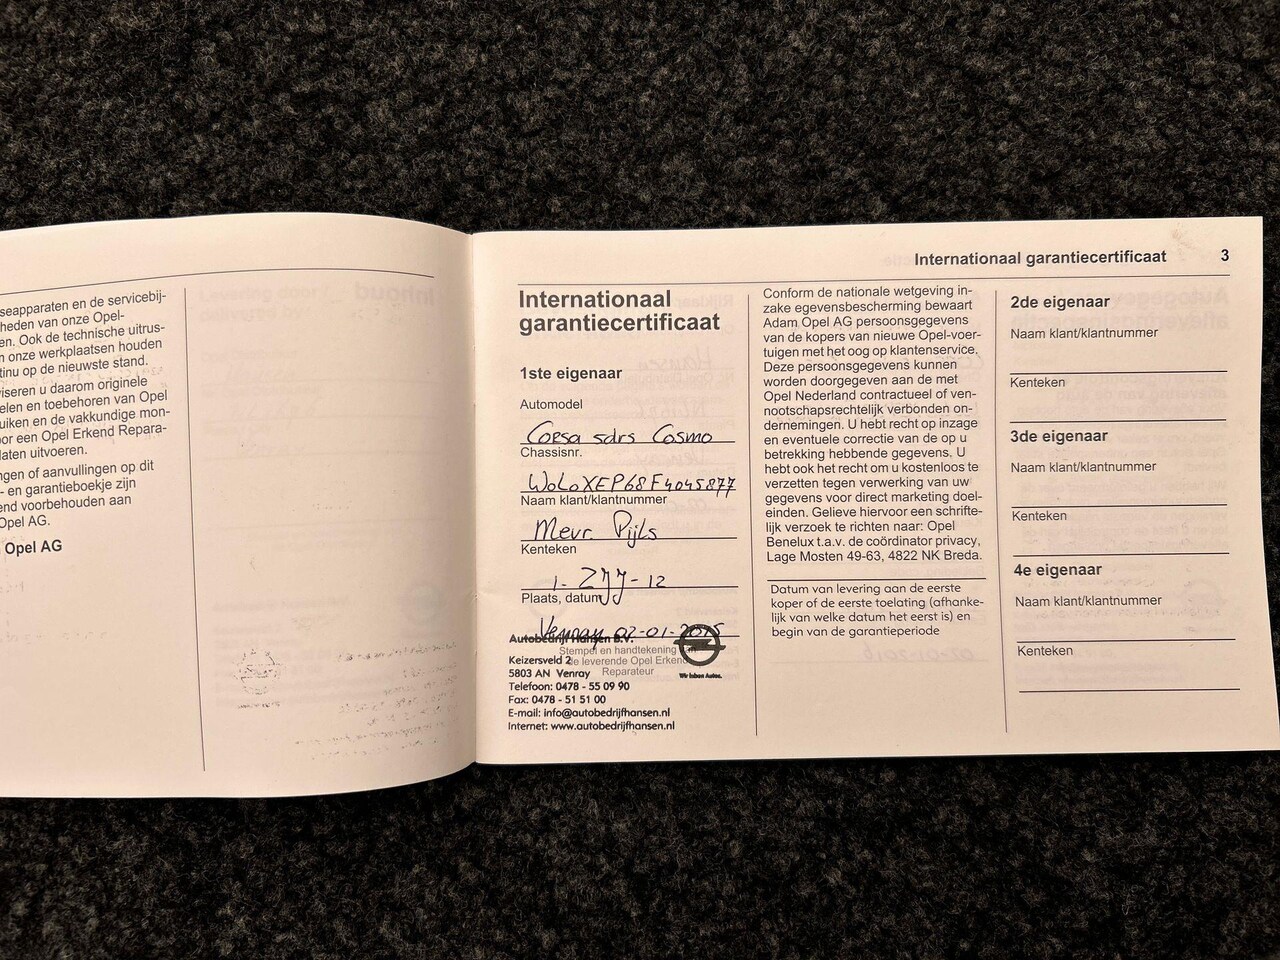 seapparaten en de servicebij-
heden van onze Opel-
en. Ook de technische uitrus-
n onze werkplaatsen houden
tinu op de nieuwste stand.
viseren u daarom originele
elen en toebehoren van Opel
uiken en de vakkundige mon-
or een Opel Erkend Repara-
laten uitvoeren.
ngen of aanvullingen op dit
- en garantieboekje zijn
end voorbehouden aan
Opel AG.
Opel AG
Internationaal garantiecertificaat 3
Internationaal
garantiecertificaat
1ste eigenaar
Automodel
Corsa 5drs Cosmo
Chassisnr.
WoLoXEP68F4045877
Naam klant/klantnummer
Mevr. Pijls
Kenteken
1-ZJJ-12
Plaats, datum
Venray 02-01-2015
Autobedrijf Hansen B.V.
Stempel en handtekening van
de leverende Opel Erkend
Reparateur
Keizersveld 2
5803 AN Venray
Telefoon: 0478 - 55 09 90
Fax: 0478 - 51 51 00
E-mail: info@autobedrijfhansen.nl
Internet: www.autobedrijfhansen.nl
Wir leben Autos.
Conform de nationale wetgeving in-
zake egevensbescherming bewaart
Adam Opel AG persoonsgegevens
van de kopers van nieuwe Opel-voer-
tuigen met het oog op klantenservice.
Deze persoonsgegevens kunnen
worden doorgegeven aan de met
Opel Nederland contractueel of ven-
nootschapsrechtelijk verbonden on-
dernemingen. U hebt recht op inzage
en eventuele correctie van de op u
betrekking hebbende gegevens. U
hebt ook het recht om u kosteloos te
verzetten tegen verwerking van uw
gegevens voor direct marketing doel-
einden. Gelieve hiervoor een schrifte-
lijk verzoek te richten naar: Opel
Benelux t.a.v. de coördinator privacy,
Lage Mosten 49-63, 4822 NK Breda.
Datum van levering aan de eerste
koper of de eerste toelating (afhanke-
lijk van welke datum het eerst is) en
begin van de garantieperiode
2de eigenaar
Naam klant/klantnummer
Kenteken
3de eigenaar
Naam klant/klantnummer
Kenteken
4e eigenaar
Naam klant/klantnummer
Kenteken